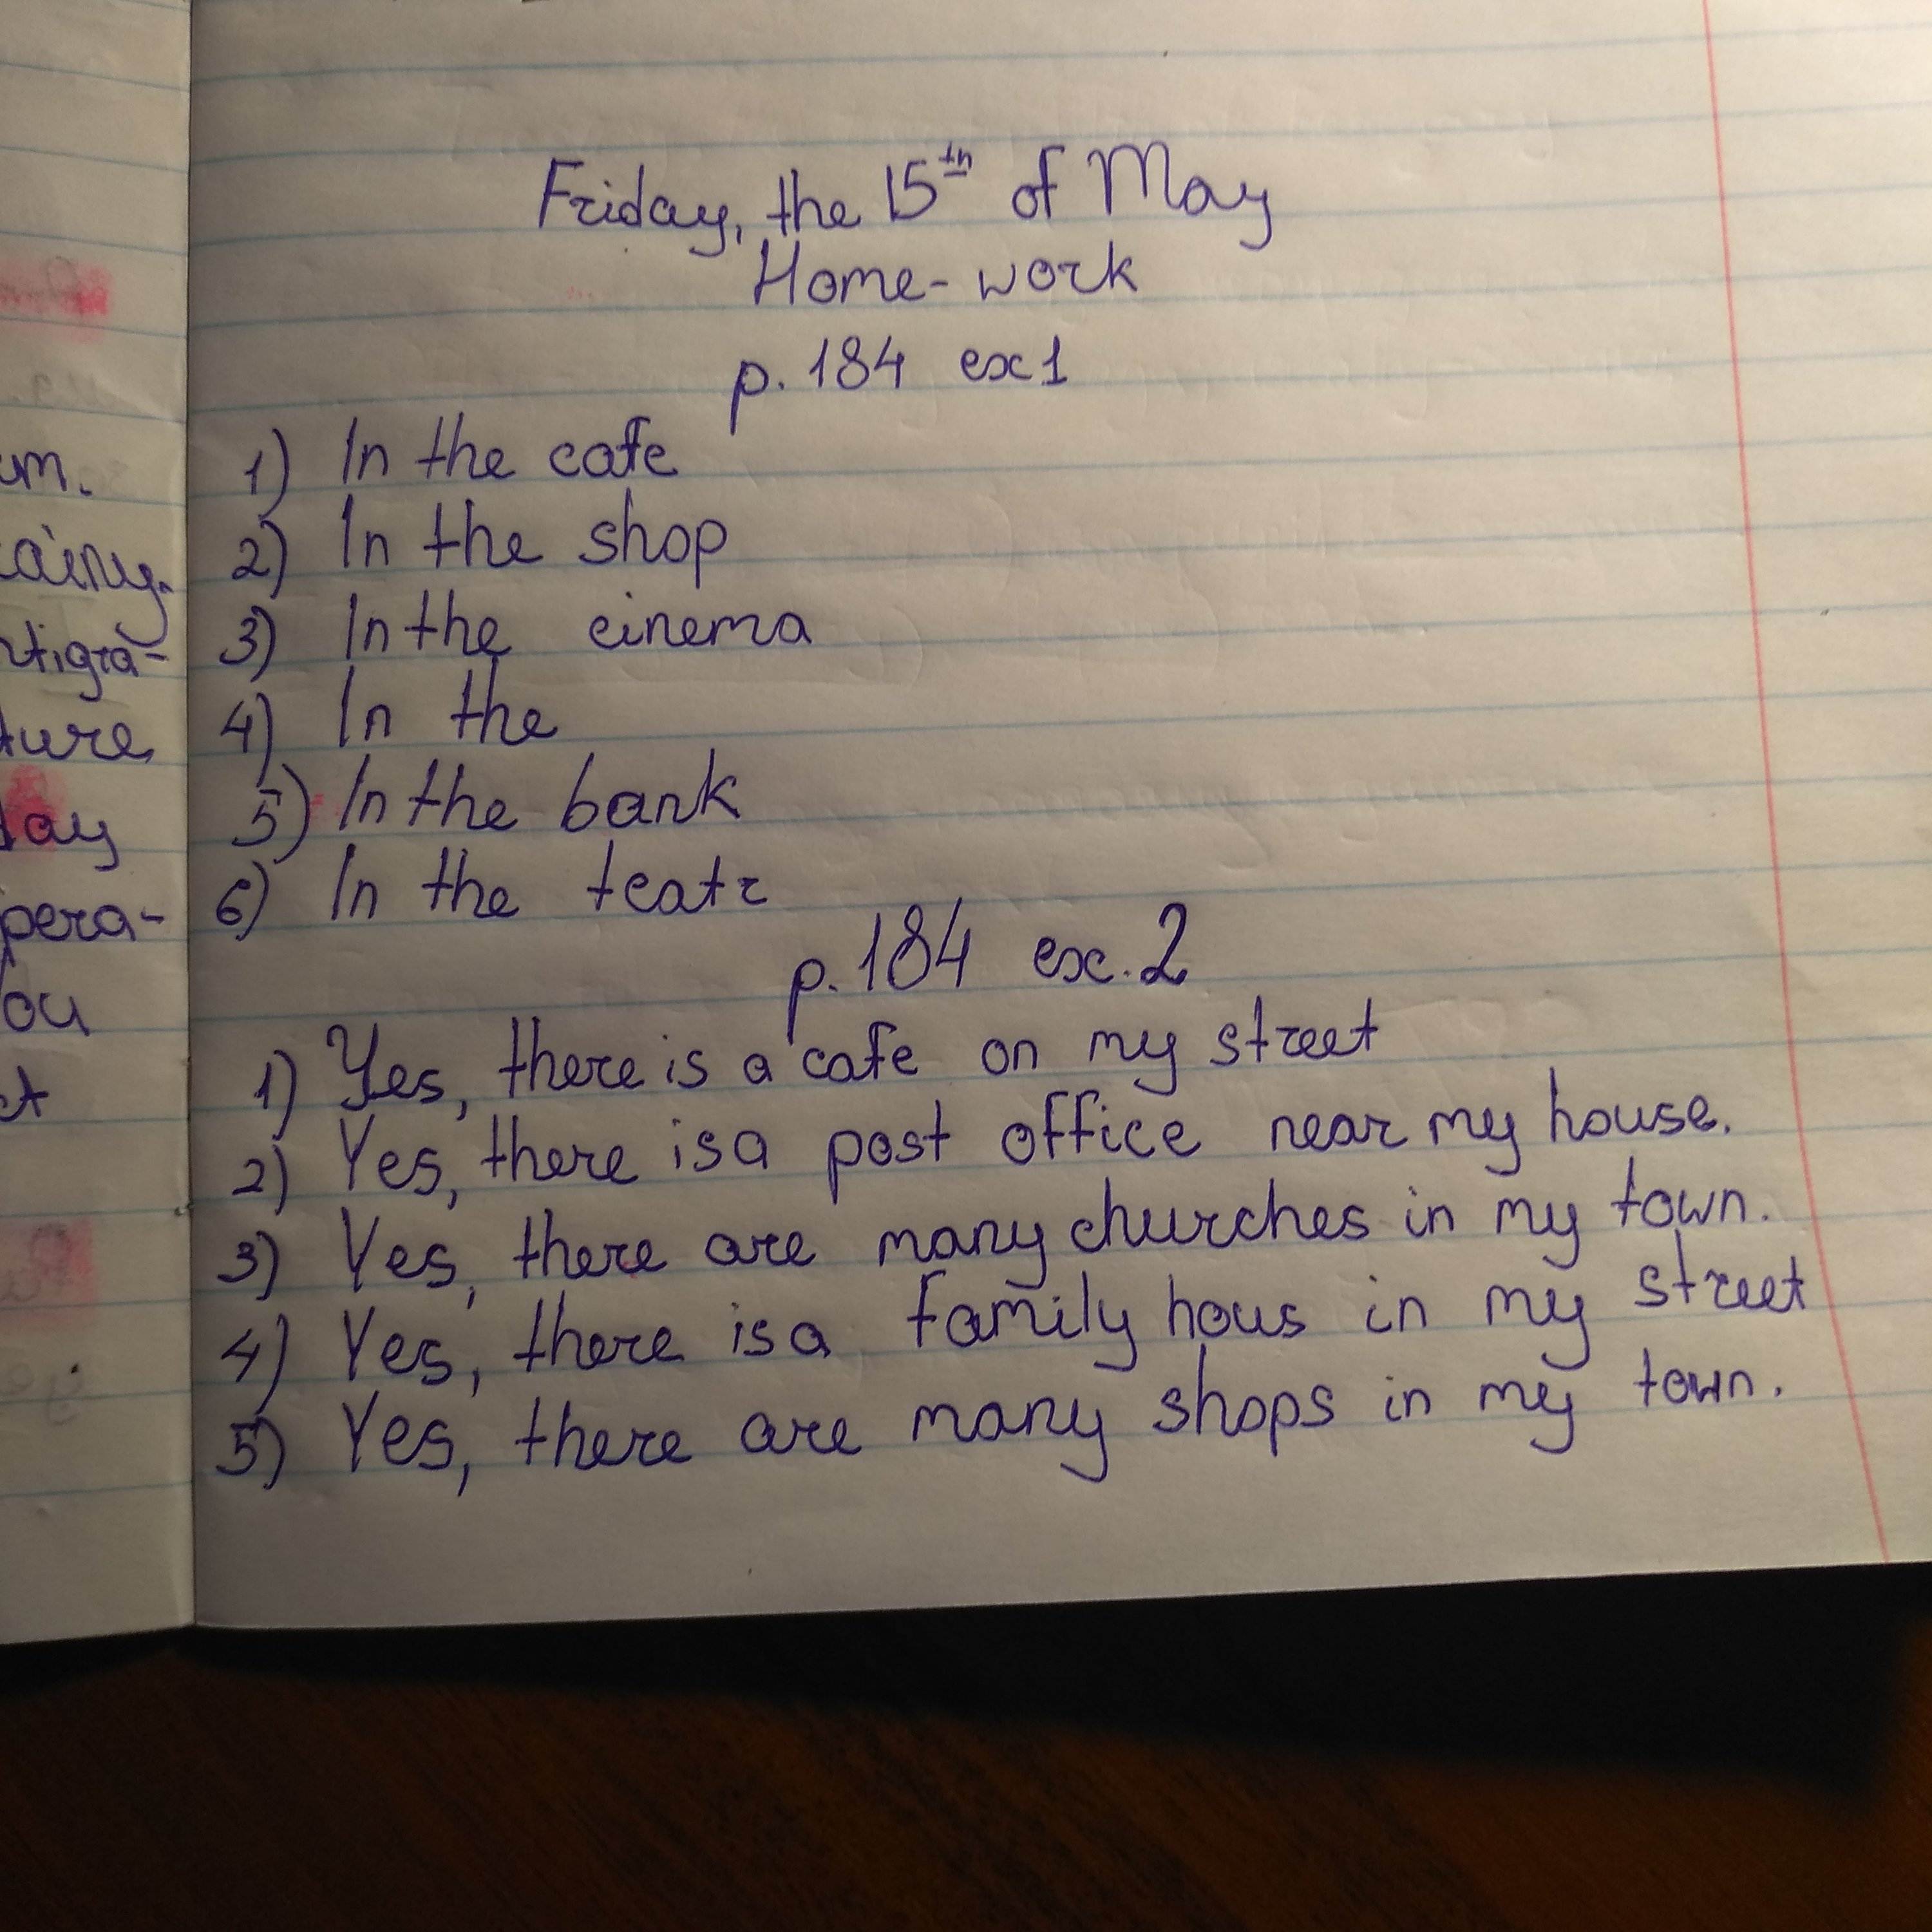 Friday, the 15th of May
Home-work
p. 184 ex 1
1) In the cafe
2) In the shop
3) In the cinema
4) In the
5) In the bank
6) In the teatr
p. 184 ex. 2
1) Yes, there is a cafe on my street
2) Yes, there is a post office near my house.
3) Yes, there are many churches in my town.
4) Yes, there is a family hous in my street
5) Yes, there are many shops in my town.